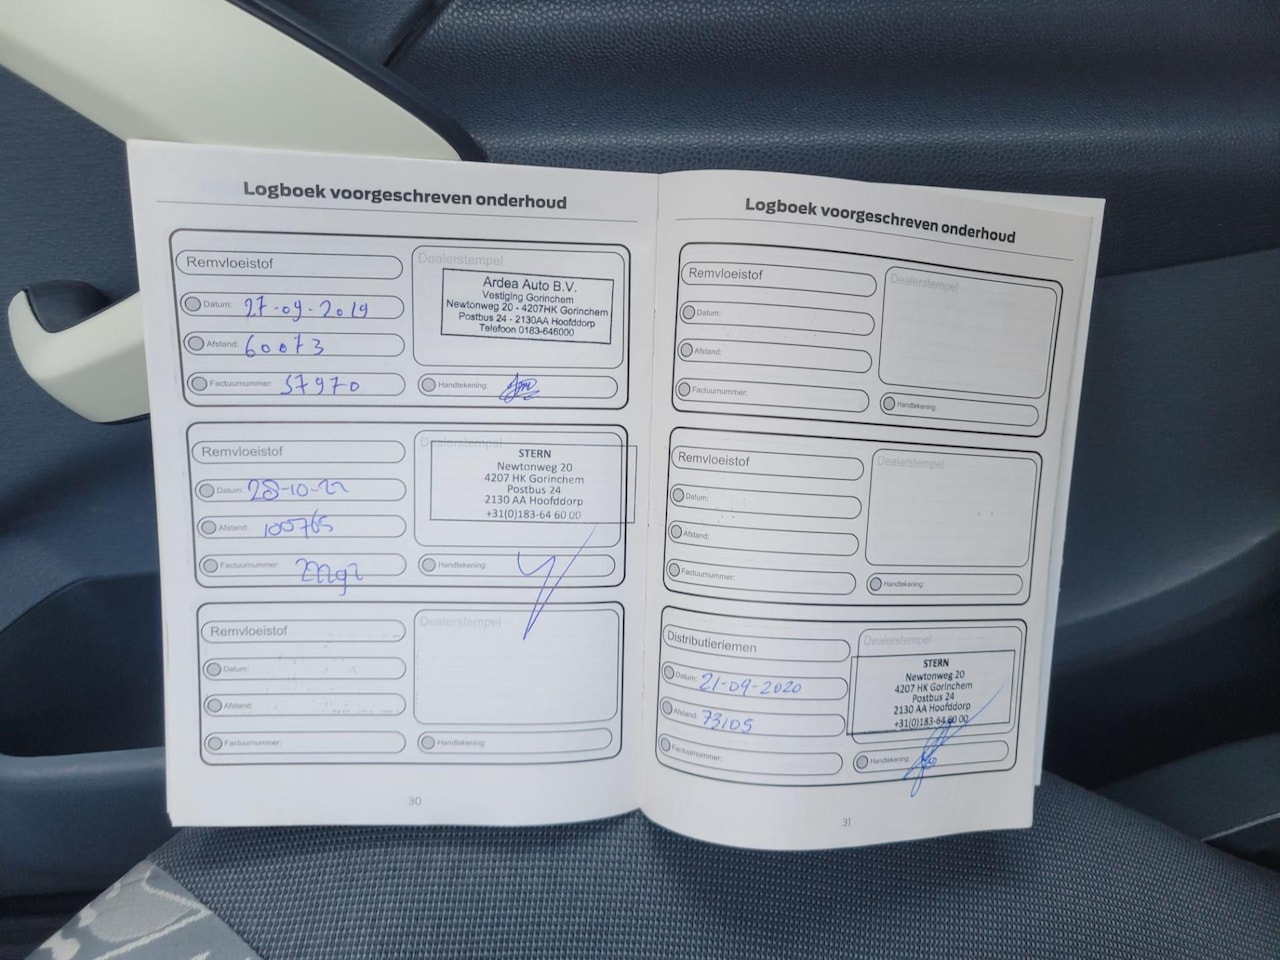 Logboek voorgeschreven onderhoud
Remvloeistof
Dealerstempel
Ardea Auto B.V.
Vestiging Gorinchem
Newtonweg 20 - 4207HK Gorinchem
Postbus 24 - 2130AA Hoofddorp
Telefoon 0183-646000
Datum: 27-09-2019
Afstand: 60073
Factuurnummer: 57970
Handtekening:
Remvloeistof
Dealerstempel
STERN
Newtonweg 20
4207 HK Gorinchem
Postbus 24
2130 AA Hoofddorp
+31(0)183-64 60 00
Datum: 28-10-22
Afstand: 100765
Factuurnummer:
Handtekening:
Remvloeistof
Dealerstempel
Datum:
Afstand:
Factuurnummer:
Handtekening:
30
Logboek voorgeschreven onderhoud
Remvloeistof
Dealerstempel
Datum:
Afstand:
Factuurnummer:
Handtekening:
Remvloeistof
Dealerstempel
Datum:
Afstand:
Factuurnummer:
Handtekening:
Distributieriemen
Dealerstempel
STERN
Newtonweg 20
4207 HK Gorinchem
Postbus 24
2130 AA Hoofddorp
+31(0)183-64 60 00
Datum: 21-09-2020
Afstand: 73105
Factuurnummer:
Handtekening:
31